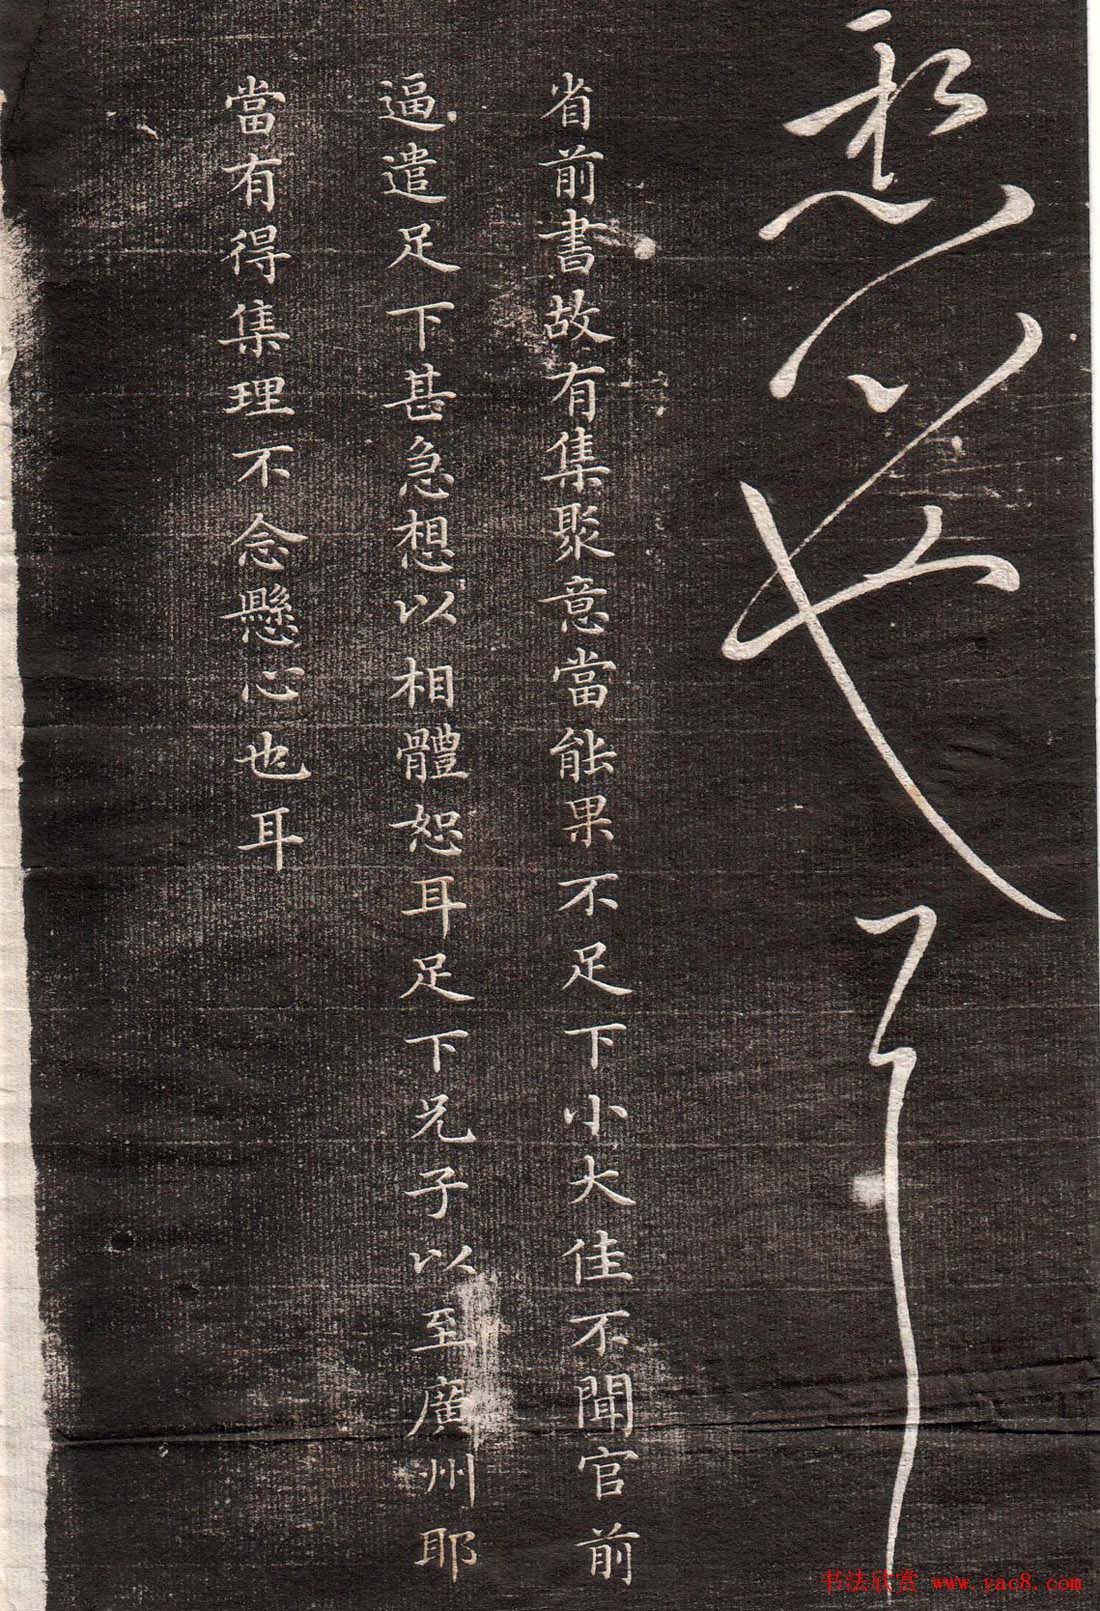 懸心也耳
省前書故有集聚意當能果不足下小大佳不聞官前
逼遣足下甚急想以相體恕耳足下兄子以至廣州耶
當有得集理不念懸心也耳
书法欣赏 www.yac8.com